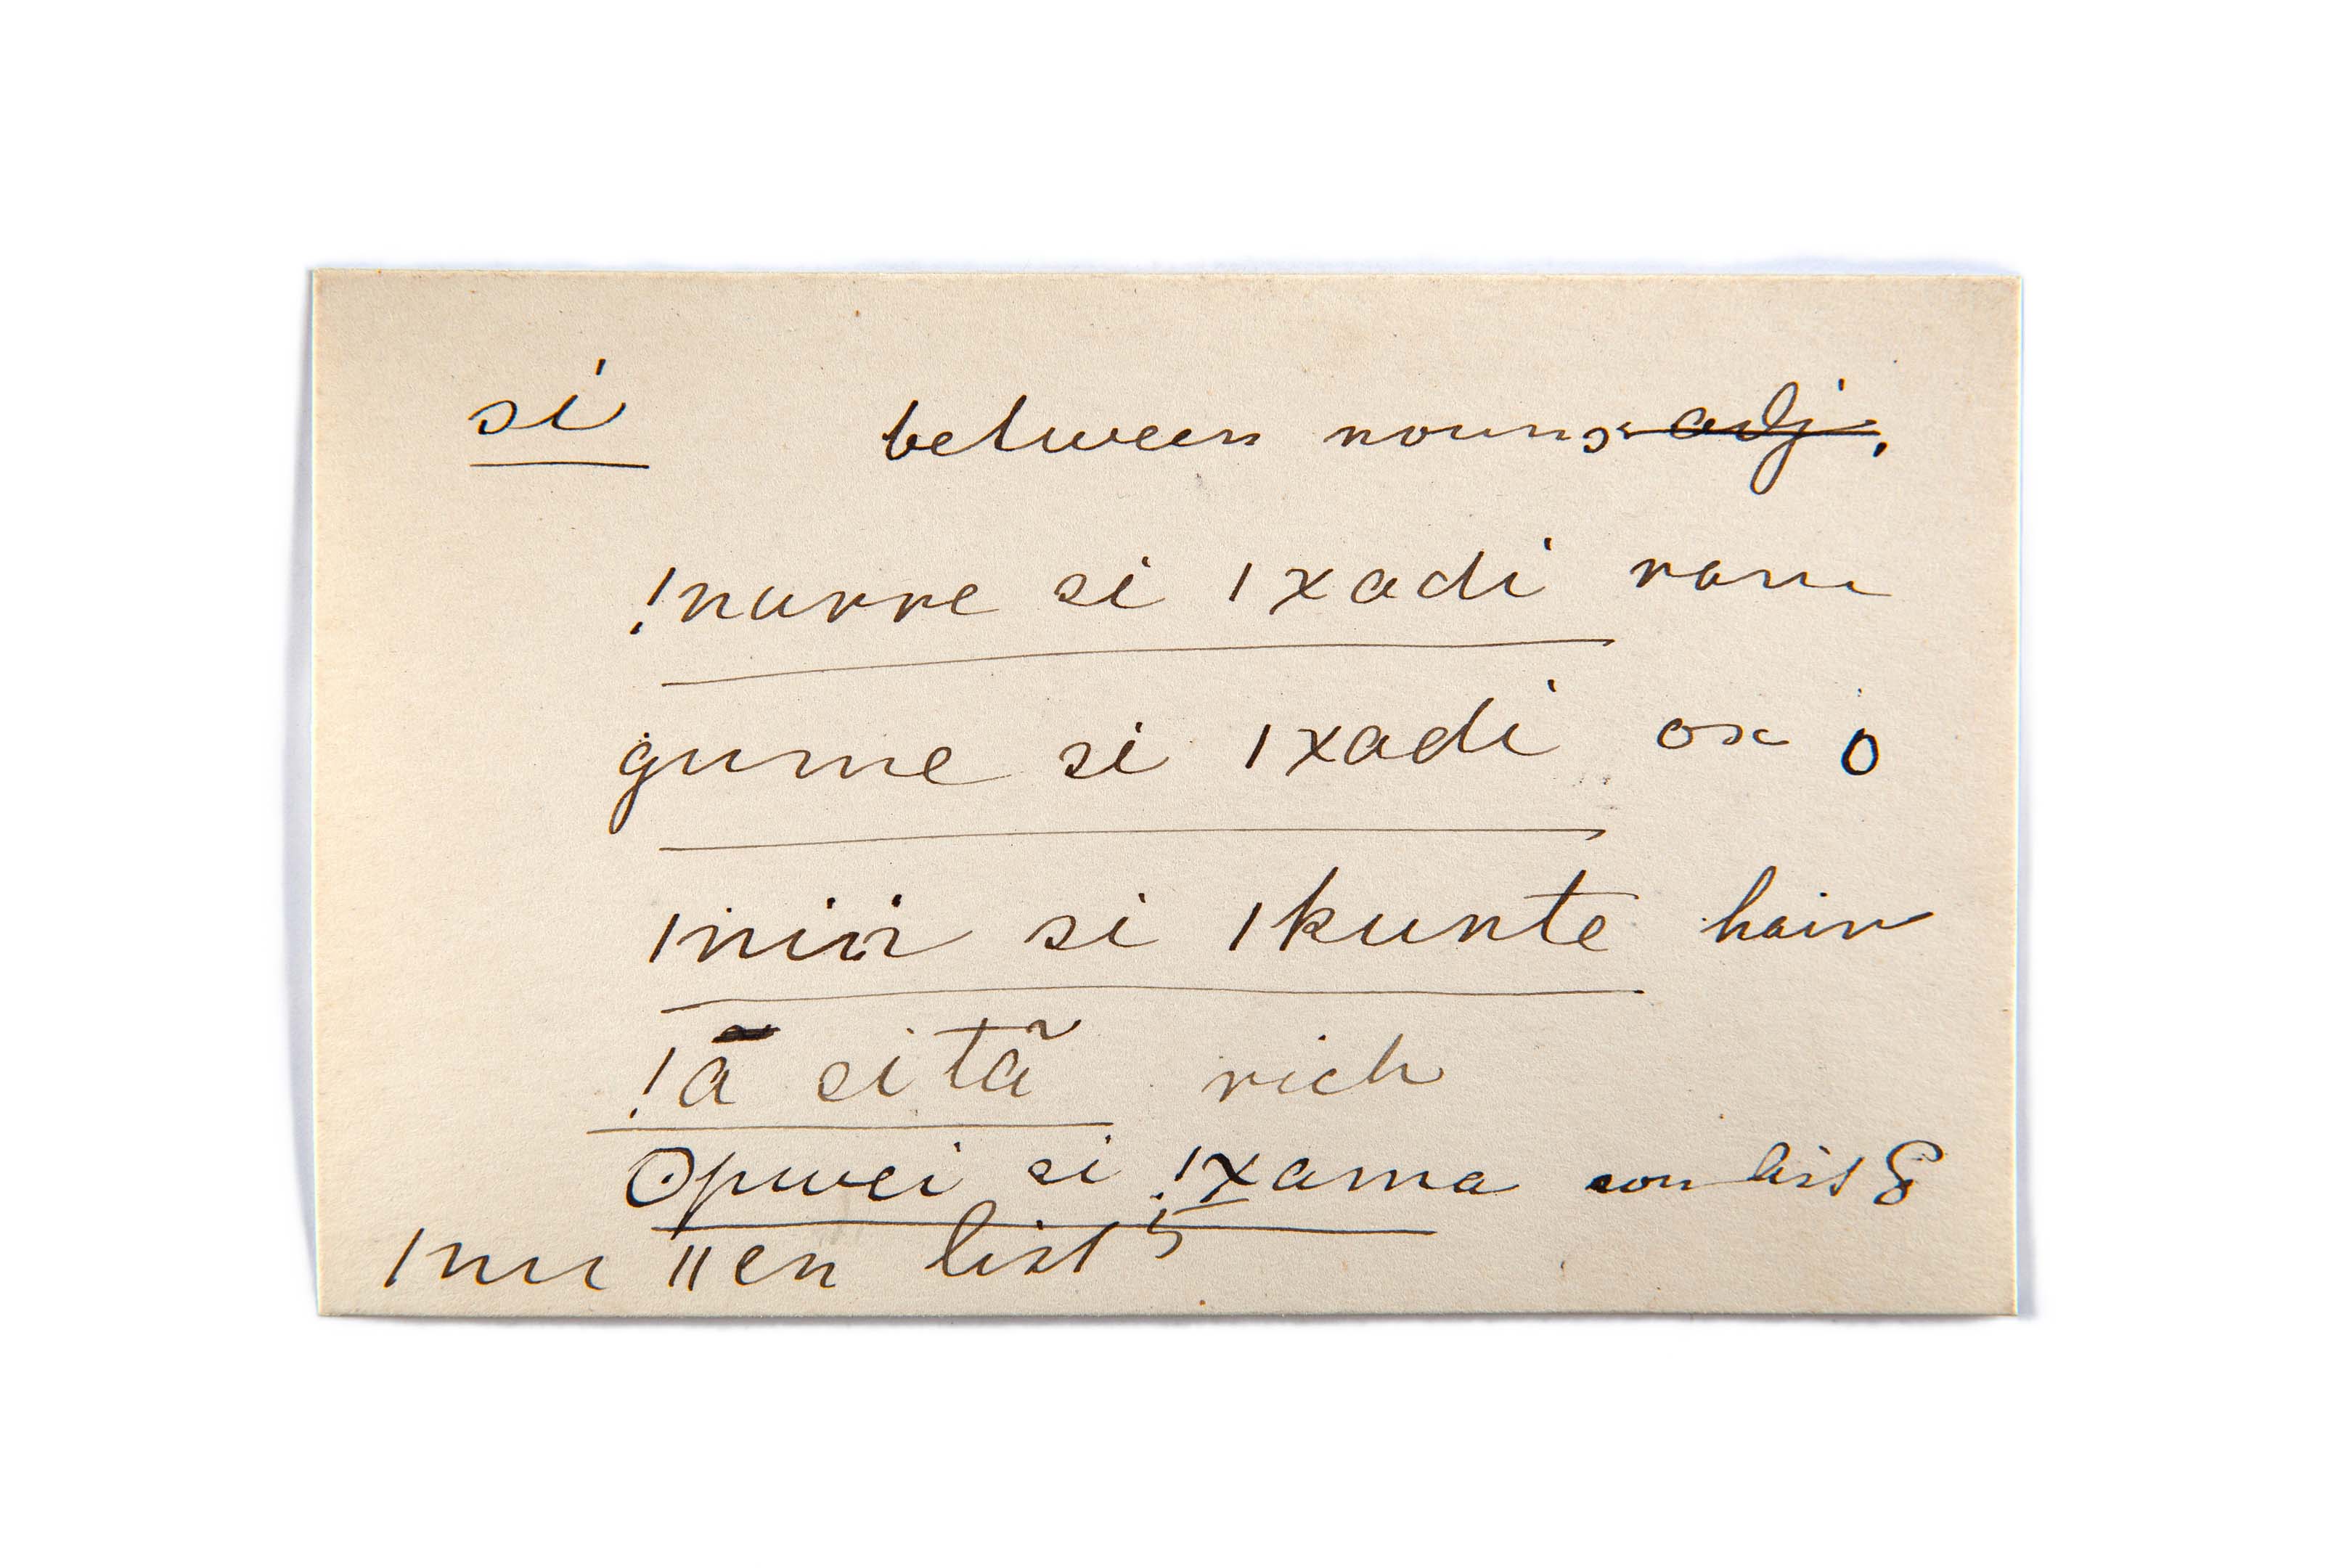 si between nouns adj.
!nurre si ǀxadi ram
gume si ǀxadi ox
ǀnin si ǀkunte hair
!ā si tã rich
ʘpwei si !xama list 8
ǀnu ǁen list 5